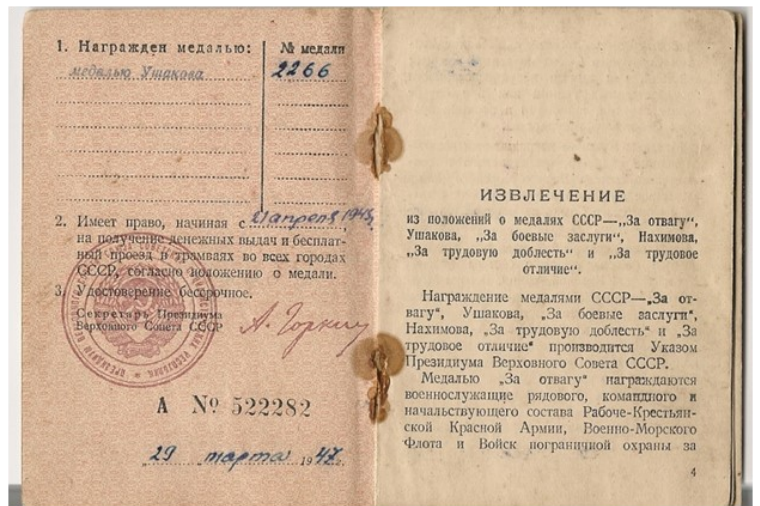 1. Награжден медалью:
№ медали
медалью Ушакова
2266
2. Имеет право, начиная с 21 апреля 1945,
на получение денежных выдач и бесплат-
ный проезд в трамваях во всех городах
СССР, согласно положению о медали.
3. Удостоверение бессрочное.
Секретарь Президиума
Верховного Совета СССР
А. Горкин
А № 522282
„29 марта 1947 г.
ИЗВЛЕЧЕНИЕ
из положений о медалях СССР—„За отвагу“,
Ушакова, „За боевые заслуги“, Нахимова,
„За трудовую доблесть“ и „За трудовое
отличие“.
Награждение медалями СССР—„За от-
вагу“, Ушакова, „За боевые заслуги“,
Нахимова, „За трудовую доблесть“ и „За
трудовое отличие“ производится Указом
Президиума Верховного Совета СССР.
Медалью „За отвагу“ награждаются
военнослужащие рядового, командного и
начальствующего состава Рабоче-Крестьян-
ской Красной Армии, Военно-Морского
Флота и Войск пограничной охраны за
4